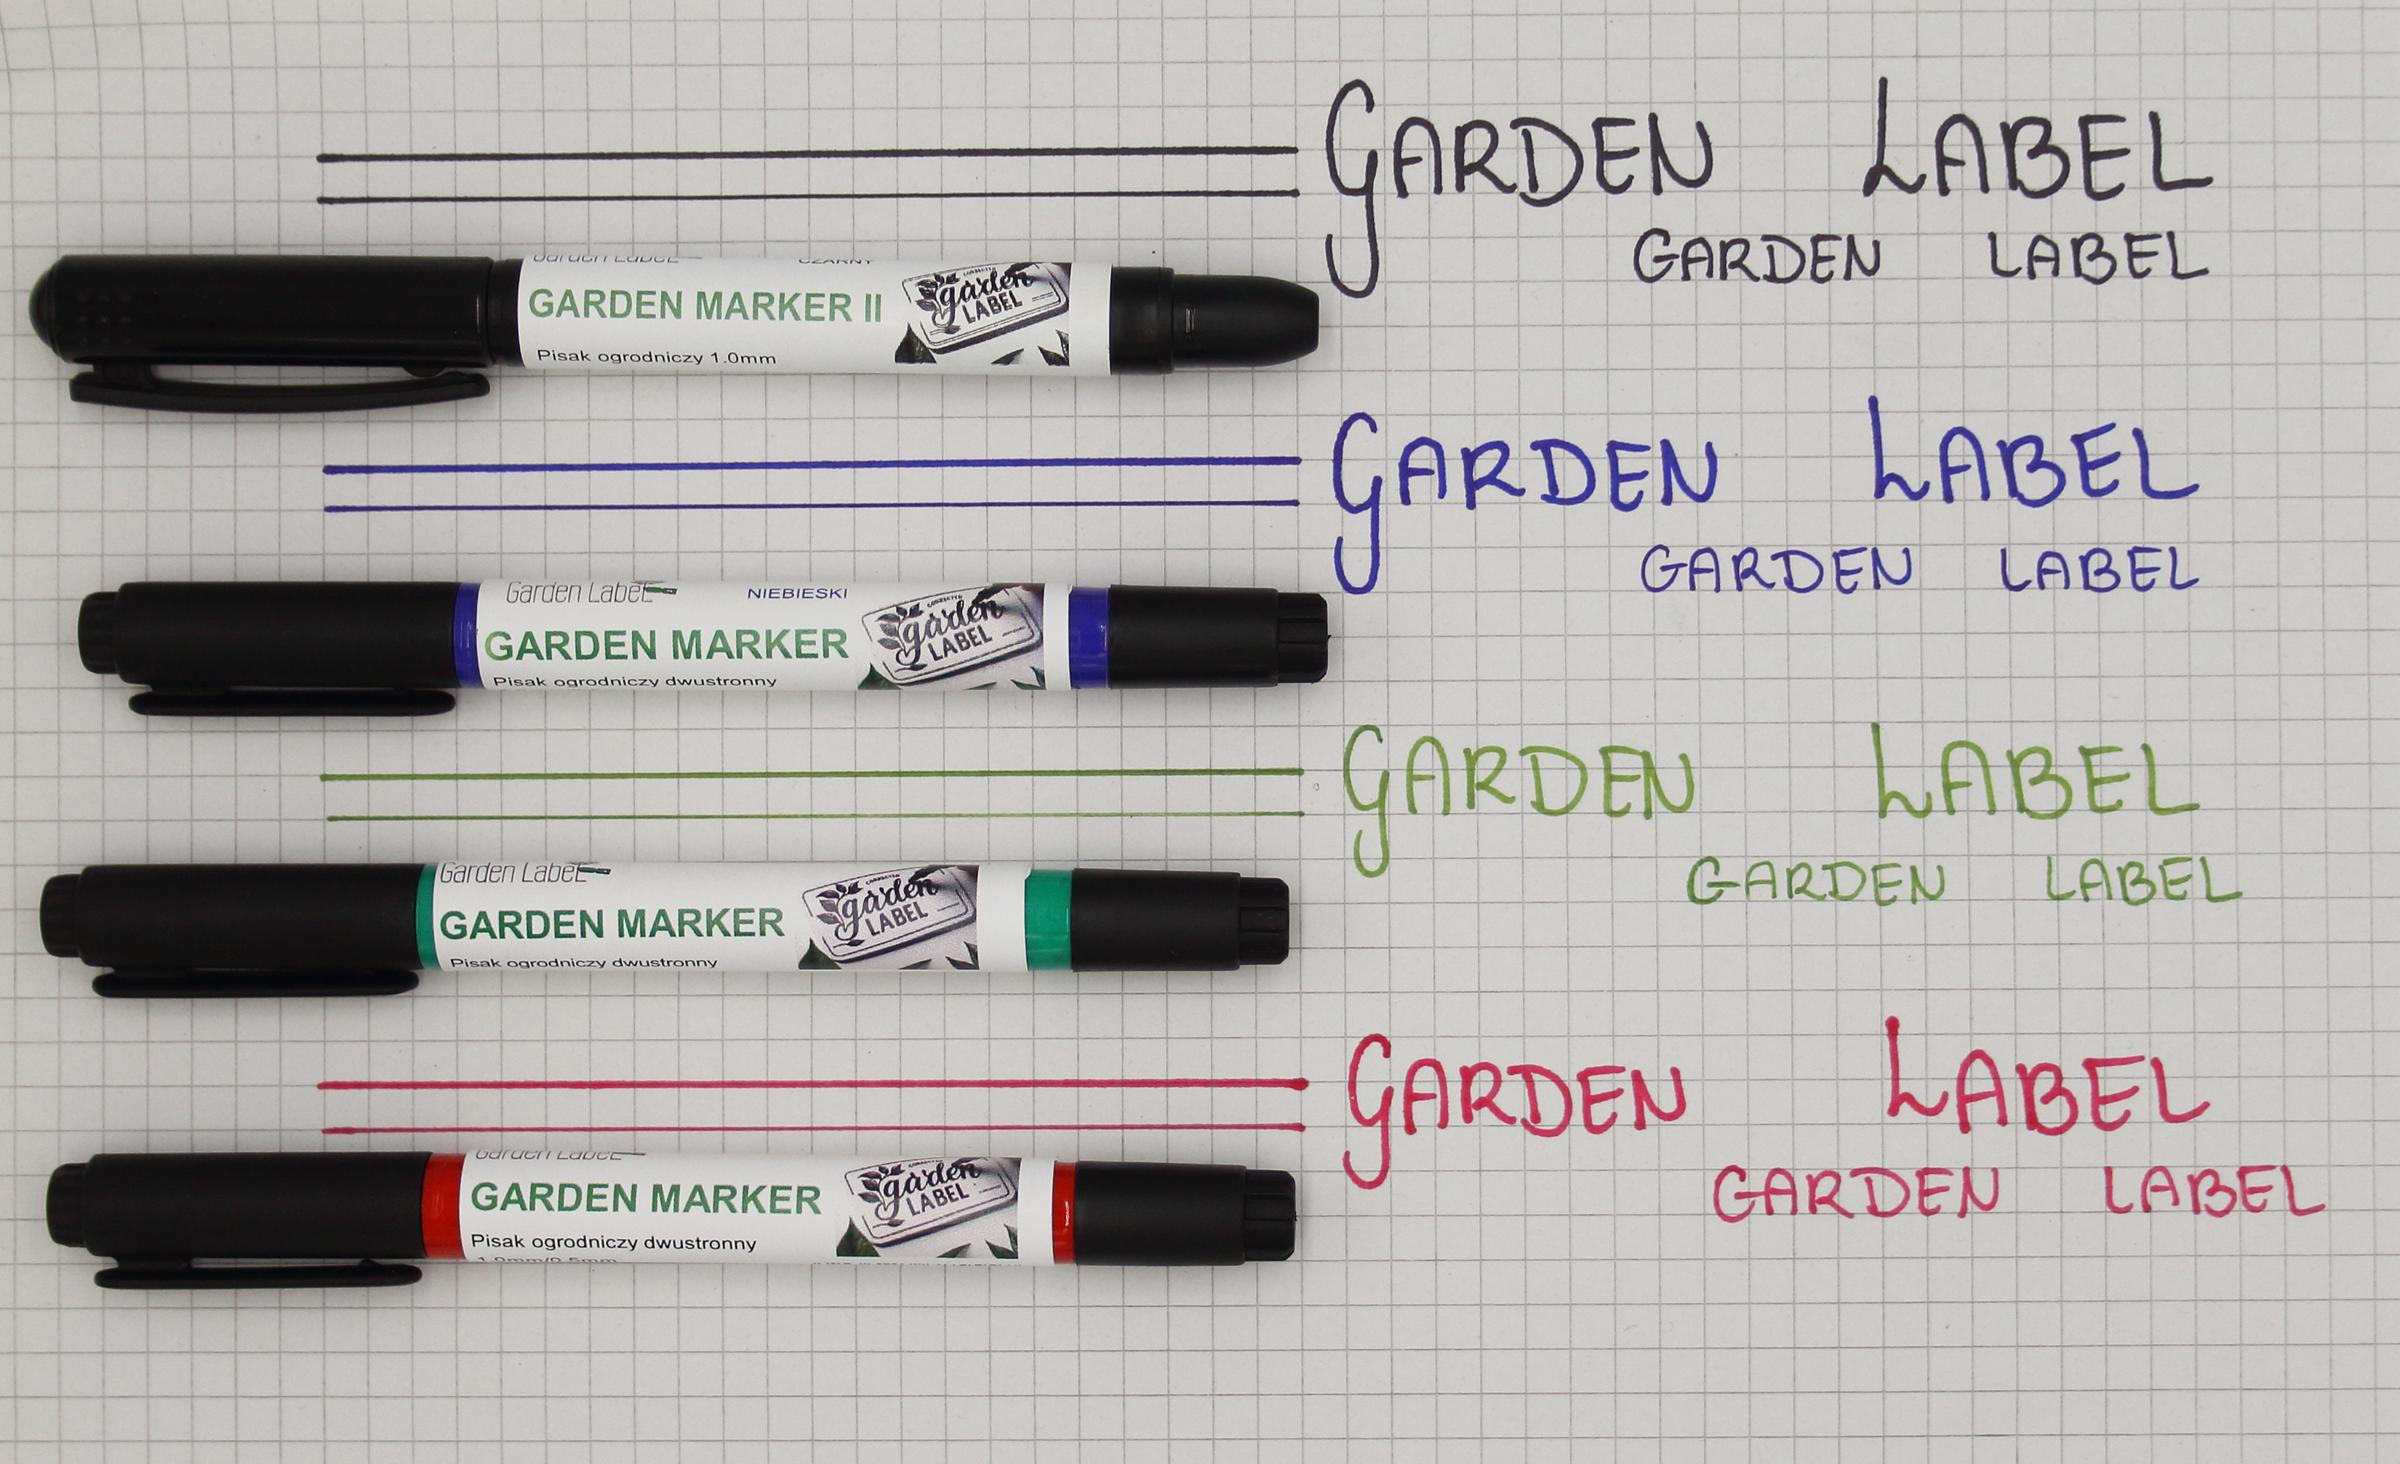 GARDEN LABEL
GARDEN LABEL
Garden Label CZARNY
GARDEN MARKER II
Pisak ogrodniczy 1.0mm
garden
LABEL
GARDEN LABEL
GARDEN LABEL
Garden Label NIEBIESKI
GARDEN MARKER
Pisak ogrodniczy dwustronny
garden
LABEL
GARDEN LABEL
GARDEN LABEL
Garden Label
GARDEN MARKER
Pisak ogrodniczy dwustronny
garden
LABEL
GARDEN LABEL
GARDEN LABEL
Garden Label
GARDEN MARKER
Pisak ogrodniczy dwustronny
1.0mm/0.5mm
garden
LABEL